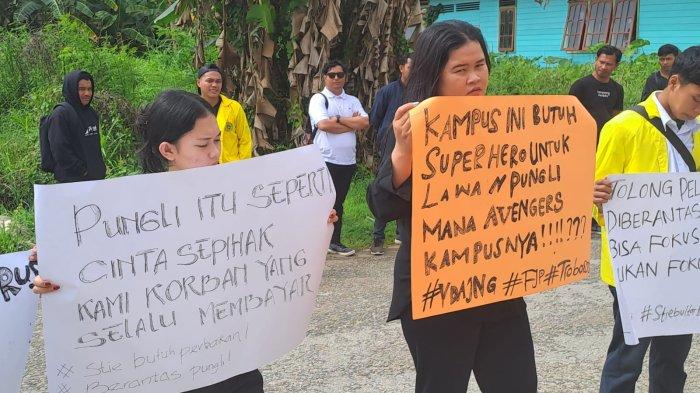 PUNGLI ITU SEPERTI
CINTA SEPIHAK
KAMI KORBAN YANG
SELALU MEMBAYAR
Stie butuh perbaikan!
Berantas pungli!
KAMPUS INI BUTUH
SUPERHERO UNTUK
LAWAN PUNGLI
MANA AVENGERS
KAMPUSNYA!!!!???
#YDAJNG #FJP
TOLONG
DIBERANTAS
BISA FOKUS
UKAN